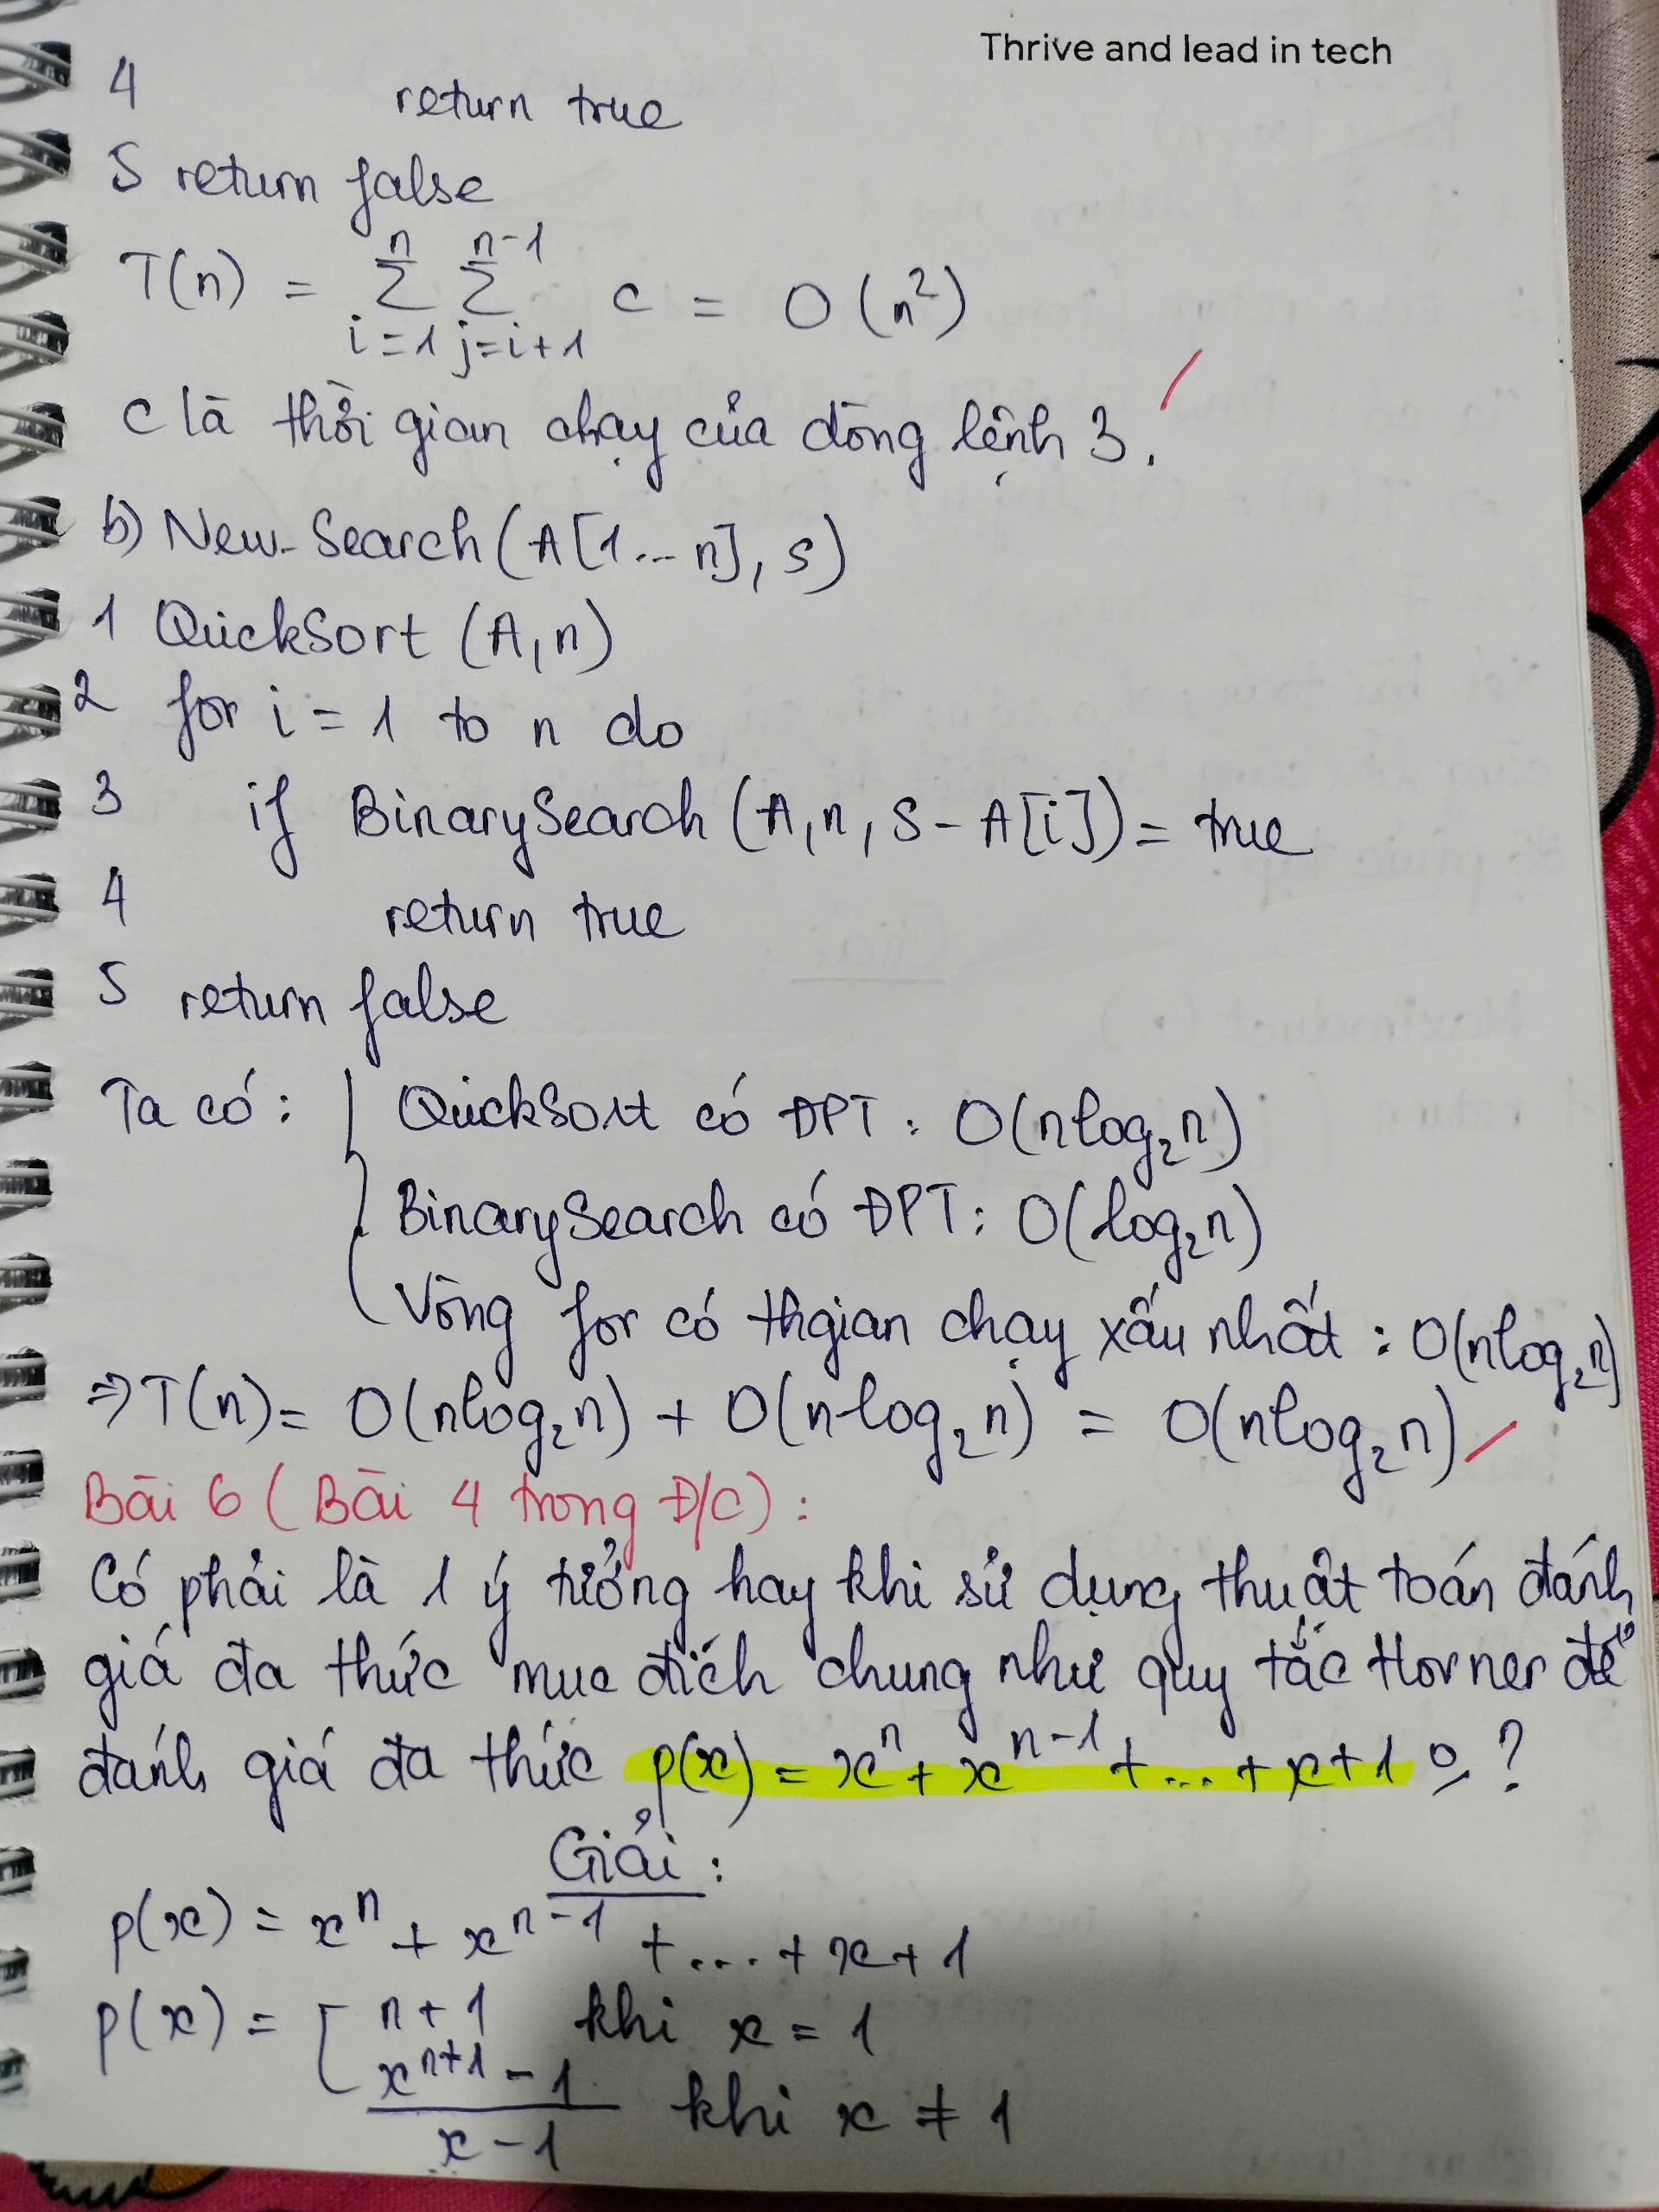 Thrive and lead in tech
4 return true
5 return false
T(n) = Σ_{i=1}^{n} Σ_{j=i+1}^{n-1} c = O(n²)
c là thời gian chạy của dòng lệnh 3.
b) New-Search(A[1...n], S)
1 QuickSort (A, n)
2 for i = 1 to n do
3 if BinarySearch (A, n, S - A[i]) = true
4 return true
5 return false
Ta có: { QuickSort có ĐPT: O(nlog₂n)
BinarySearch có ĐPT: O(log₂n)
Vòng for có thgian chạy xấu nhất: O(nlog₂n)
⇒ T(n) = O(nlog₂n) + O(nlog₂n) = O(nlog₂n)
Bài 6 (Bài 4 trong Đ/C):
Có phải là 1 ý tưởng hay khi sử dụng thuật toán đánh
giá đa thức mục đích chung như quy tắc Horner để
đánh giá đa thức p(x) = xⁿ + xⁿ⁻¹ + ... + x + 1 o ?
Giải:
p(x) = xⁿ + xⁿ⁻¹ + .... + x + 1
p(x) = [ n + 1 khi x = 1
(xⁿ⁺¹ - 1)/(x - 1) khi x ≠ 1